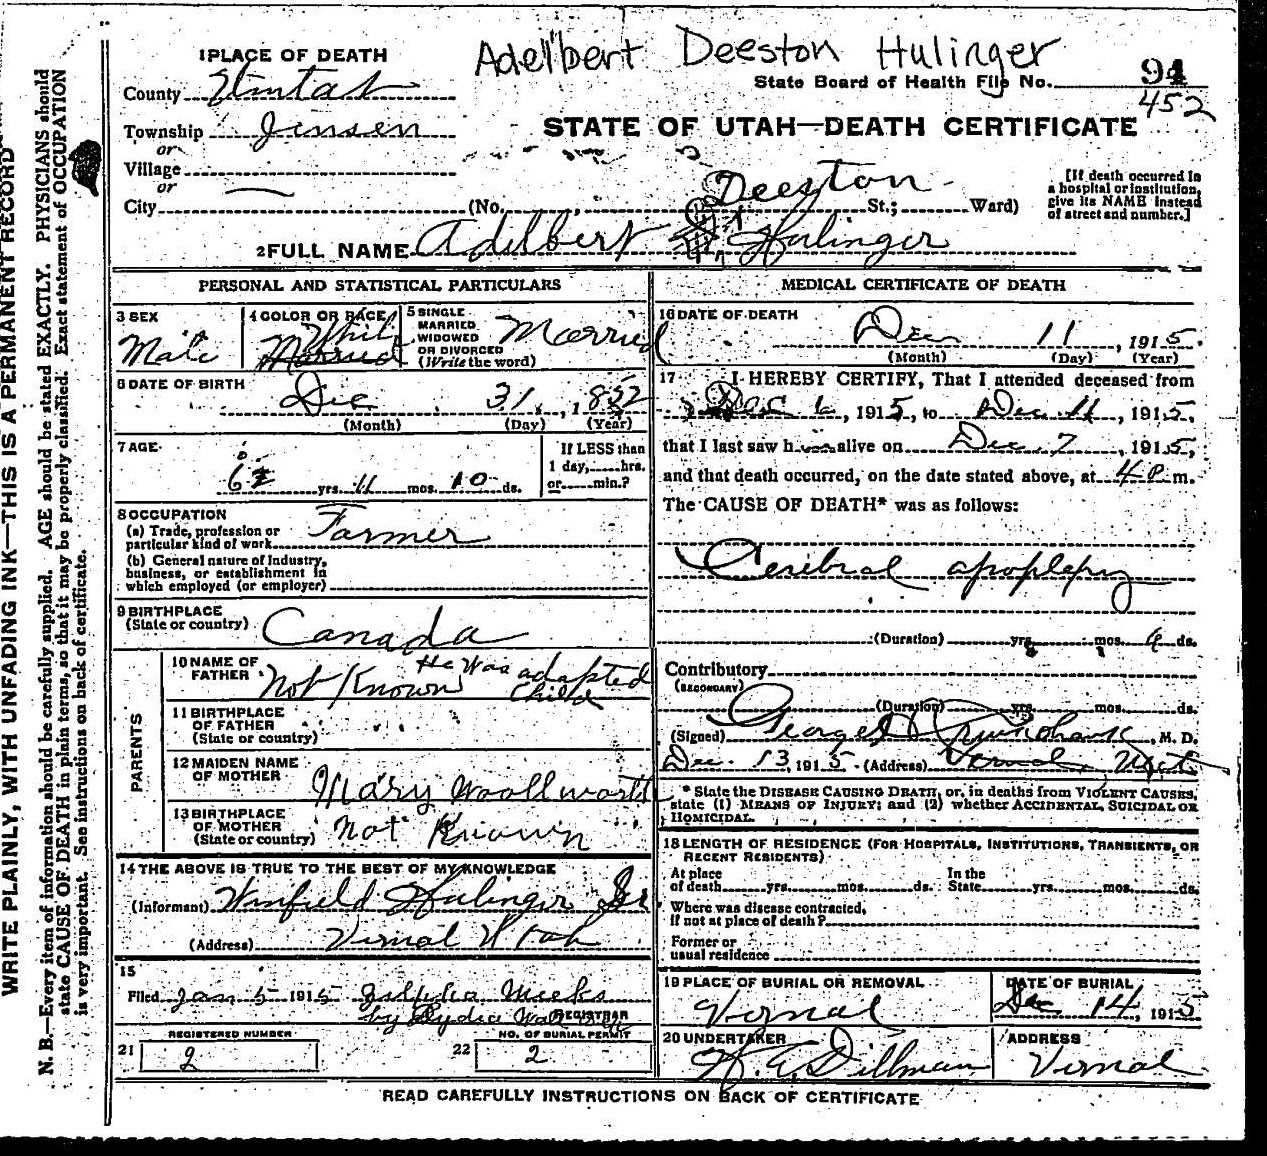 Adelbert Deeston Hulinger
1 PLACE OF DEATH
State Board of Health File No. 94
452
County Uintah
Township Jensen
or
STATE OF UTAH—DEATH CERTIFICATE
Village
or
Deeston
[If death occurred in a hospital or institution, give its NAME instead of street and number.]
City (No. , St.; Ward)
2 FULL NAME Adelbert Hulinger
PERSONAL AND STATISTICAL PARTICULARS
3 SEX Male
4 COLOR OR RACE White Married
5 SINGLE MARRIED WIDOWED OR DIVORCED (Write the word) Married
6 DATE OF BIRTH Dec 31, 1852
(Month) (Day) (Year)
7 AGE 62 yrs. 11 mos. 10 ds.
If LESS than 1 day, hrs. or min.?
8 OCCUPATION
(a) Trade, profession or particular kind of work Farmer
(b) General nature of Industry, business, or establishment in which employed (or employer)
9 BIRTHPLACE
(State or country) Canada
PARENTS
10 NAME OF FATHER Not Known He was adapted Child
11 BIRTHPLACE OF FATHER
(State or country)
12 MAIDEN NAME OF MOTHER Mary Woollworth
13 BIRTHPLACE OF MOTHER
(State or country) Not Known
14 THE ABOVE IS TRUE TO THE BEST OF MY KNOWLEDGE
(Informant) Winfield Hulinger Sr
(Address) Vernal Utah
15
Filed Jan 5 1915 Meeks
by Lydia
REGISTRAR
REGISTERED NUMBER
NO. OF BURIAL PERMIT
21 2
22 2
MEDICAL CERTIFICATE OF DEATH
16 DATE OF DEATH
Dec 11, 1915.
(Month) (Day) (Year)
17 I HEREBY CERTIFY, That I attended deceased from
Dec 6, 1915, to Dec 11, 1915,
that I last saw h alive on Dec 7, 1915,
and that death occurred, on the date stated above, at 4 P m.
The CAUSE OF DEATH* was as follows:
Cerebral apoplepy
(Duration) yrs. mos. ds.
Contributory
(SECONDARY)
(Duration) yrs. mos. ds.
(Signed) George , M. D.
Dec. 13, 1915 (Address) Vernal, Utah
* State the DISEASE CAUSING DEATH, or, in deaths from VIOLENT CAUSES, state (1) MEANS OF INJURY; and (2) whether ACCIDENTAL, SUICIDAL OR HOMICIDAL.
18 LENGTH OF RESIDENCE (FOR HOSPITALS, INSTITUTIONS, TRANSIENTS, OR RECENT RESIDENTS)
At place of death yrs. mos. ds. In the State yrs. mos. ds.
Where was disease contracted, If not at place of death?
Former or usual residence
19 PLACE OF BURIAL OR REMOVAL
Vernal
DATE OF BURIAL
Dec 14, 1915
20 UNDERTAKER
Dillman
ADDRESS
Vernal
READ CAREFULLY INSTRUCTIONS ON BACK OF CERTIFICATE
WRITE PLAINLY, WITH UNFADING INK—THIS IS A PERMANENT RECORD
N. B.—Every item of information should be carefully supplied. AGE should be stated EXACTLY. PHYSICIANS should
state CAUSE OF DEATH in plain terms, so that it may be properly classified. Exact statement of OCCUPATION
is very important. See instructions on back of certificate.